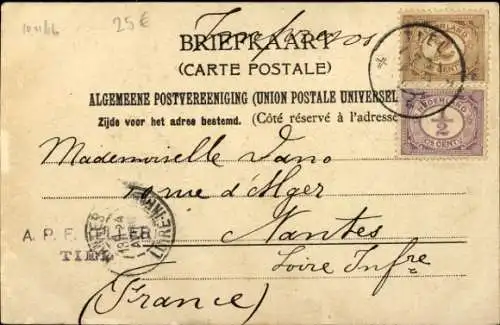 25 €
BRIEFKAART
(CARTE POSTALE)
ALGEMEENE POSTVEREENIGING (UNION POSTALE UNIVERSEL
Zijde voor het adres bestemd. (Côté réservé à l'adresse
NEDERLAND
CENT
NEDERLAND
1/2
CENT
TIEL
Mademoiselle Dano
10 rue d'Alger
Nantes
Loire Infre
(France)
A. P. F.
TIEL